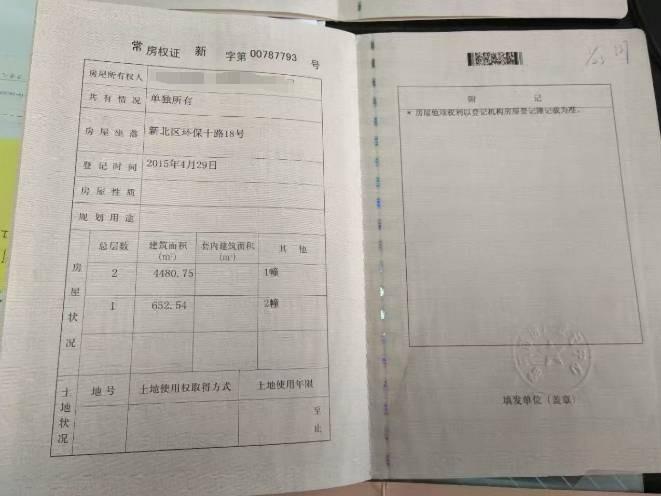 常 房权证 新 字第 00787793 号
房屋所有权人
共有情况 单独所有
房屋坐落 新北区环保十路18号
登记时间 2015年4月29日
房屋性质
规划用途
房屋状况
总层数 建筑面积(m²) 套内建筑面积(m²) 其他
2 4480.75 1幢
1 652.54 2幢
土地状况
地号 土地使用权取得方式 土地使用年限
至
止
附 记
* 房屋他项权利以登记机构房屋登记簿记载为准。
填发单位（盖章）